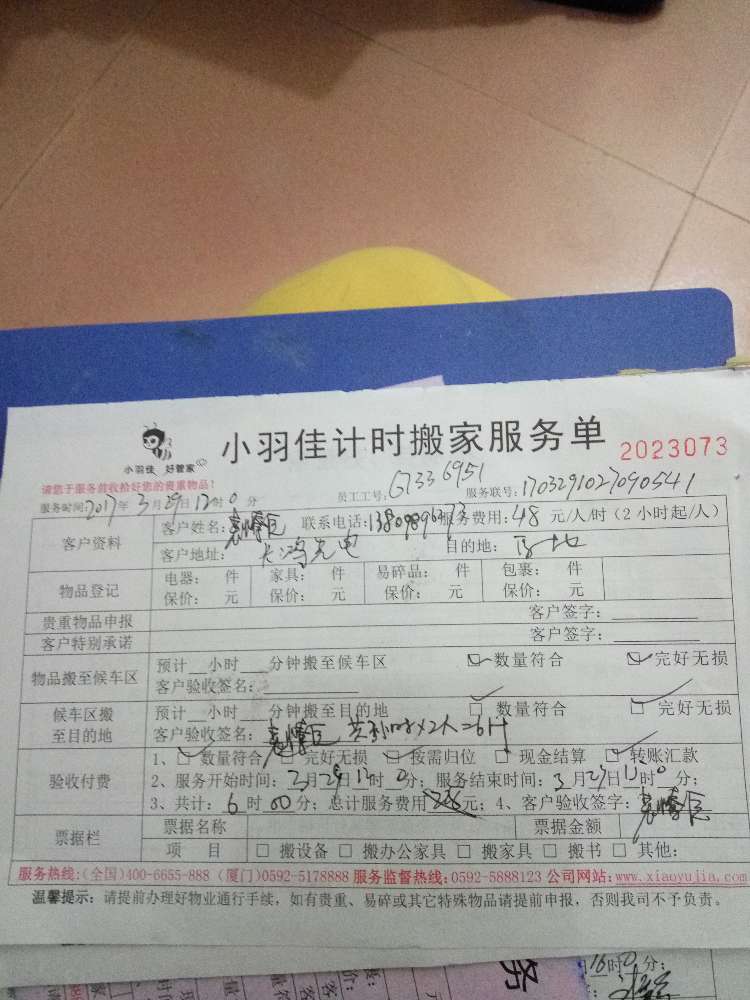 小羽佳 好管家
小羽佳计时搬家服务单 2023073
请您于服务前收拾好您的贵重物品！
服务时间：2017年3月29日12时0分 员工工号：G7336951 服务联号：1703291027090541
客户资料
客户姓名： 联系电话： 服务费用：48元/人/时（2小时起/人）
客户地址：长鸿光电 目的地：
物品登记
电器： 件 家具： 件 易碎品： 件 包裹： 件
保价： 元 保价： 元 保价： 元 保价： 元
贵重物品申报 客户签字：
客户特别承诺 客户签字：
物品搬至候车区
预计__小时___分钟搬至候车区 数量符合 完好无损
客户验收签名：
候车区搬至目的地
预计__小时___分钟搬至目的地 数量符合 完好无损
客户验收签名： 2人=6H
验收付费
1、 数量符合 完好无损 按需归位 现金结算 转账汇款
2、服务开始时间：3月29日 时0分；服务结束时间：3月29日 时0分；
3、共计：6时00分；总计服务费用 元；4、客户验收签字：
票据栏
票据名称 票据金额
项 目 搬设备 搬办公家具 搬家具 搬书 其他：
服务热线：(全国)400-6655-888 (厦门)0592-5178888 服务监督热线：0592-5888123 公司网站：www.xiaoyujia.com
温馨提示：请提前办理好物业通行手续，如有贵重、易碎或其它特殊物品请提前申报，否则我司不予负责。
16时0分；
务